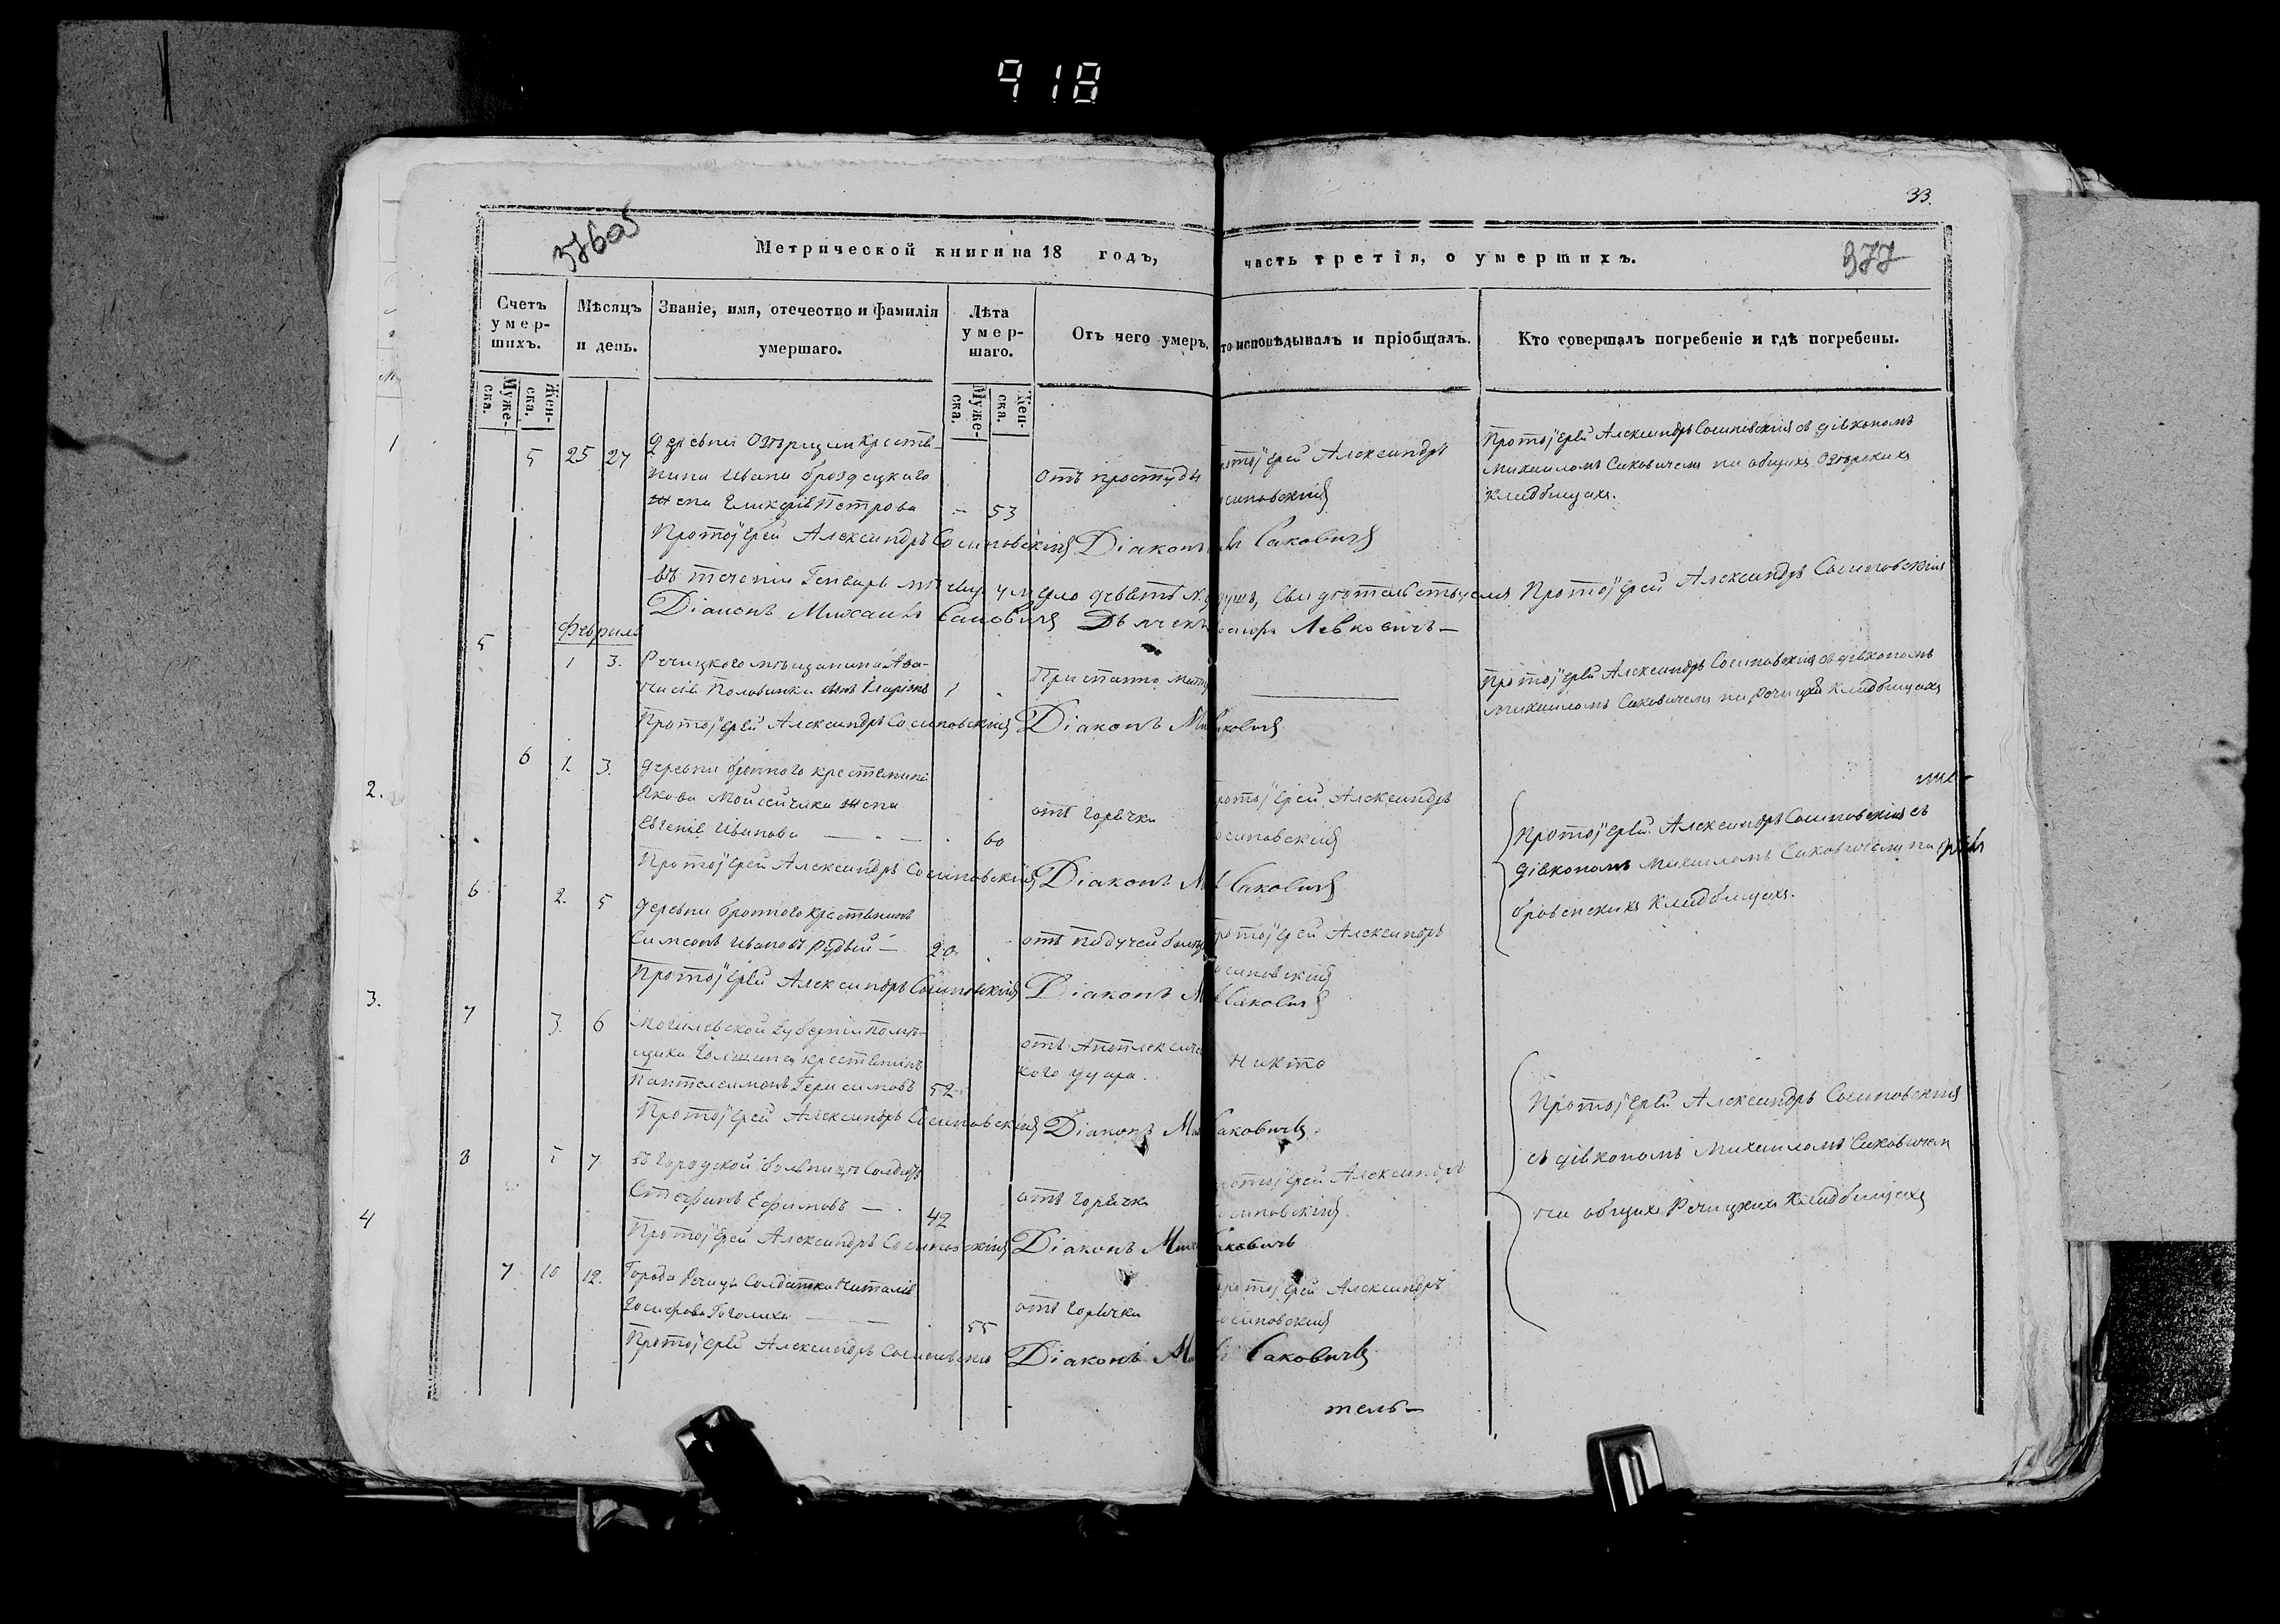 918
33.
Метрической книги на 18 годъ, часть третія, о умершихъ.
377
Счетъ умер-шихъ.
Мѣсяцъ и день.
Званіе, имя, отечество и фамилія умершаго.
Лѣта умер-шаго.
Отъ чего умеръ.
то исповѣдывалъ и пріобщалъ.
Кто совершалъ погребеніе и гдѣ погребены.
Муже-ска.
Жен-ска.
Муже-ска.
Жен-ска.
1
5 25 27 деревни Озерщин крестья-
нина Ивана
жена Гликерія Петрова – 53
Отъ простуды
ротоіерей Александръ
осиповскій
Протоіерей Александръ Сосиповскій съ діакономъ
Михаиломъ Саковичемъ на общихъ Озерскихъ
Кладбищахъ.
Протоіерей Александръ Сосиповскій Діаконъ Саковичъ
въ теченіи Генваря умерло девять душъ, Свидѣтельствуемъ Протоіерей Александръ Сосиповскій
Діаконъ Михаилъ Саковичъ Дьячекъ Левковичъ –
Февраль
5 1 3. Речицкого мѣщанина Афа-
насія Половинки сынъ Иларіонъ 1
Протоіерей Александръ Сосиповскій съ діакономъ
Михаиломъ Саковичемъ на Речицкихъ Кладбищахъ
Протоіерей Александръ Сосиповскій Діаконъ аковичъ
2.
6 1. 3. деревни Бронного крестьянина
Якова Мойсейчика жена
Евгенія Иванова – 60
отъ Горячки
ротоіерей Александръ
осиповскій
Протоіерей Александръ Сосиповскій съ
діакономъ Михаиломъ Саковичемъ на
Кладбищахъ.
Протоіерей Александръ Сосиповскій Діаконъ М Саковичъ
6 2. 5 деревни Бронного крестьянинъ
Симеонъ Ивановъ – 20
отъ Падучей
ротоіерей Александръ
осиповскій
Протоіерей Александръ Сосиповскій Діаконъ М Саковичъ
3.
7 3. 6 Могилевской Губерніи помѣ-
щика крестьянинъ
Пантелеимонъ Герасимовъ 52
отъ Апоплексиче
кого удара.
Никто
Протоіерей Александръ Сосиповскій
съ діакономъ Михаиломъ Саковичемъ
на общихъ Речицкихъ Кладбищахъ
Протоіерей Александръ Сосиповскій Діаконъ Ми Саковичъ
8 5 7 въ Городской больницѣ Солдатъ
Стефанъ Ефимовъ – 42
отъ Горячки
ротоіерей Александръ
осиповскій
4
Протоіерей Александръ Сосиповскій Діаконъ Мих Саковичъ
7 10 12. Города Речицы Солдатка Наталія
Іосифова – 55
отъ Горячки
ротоіерей Александръ
осиповскій
Протоіерей Александръ Сосиповскій Діаконъ М Саковичъ
тель –